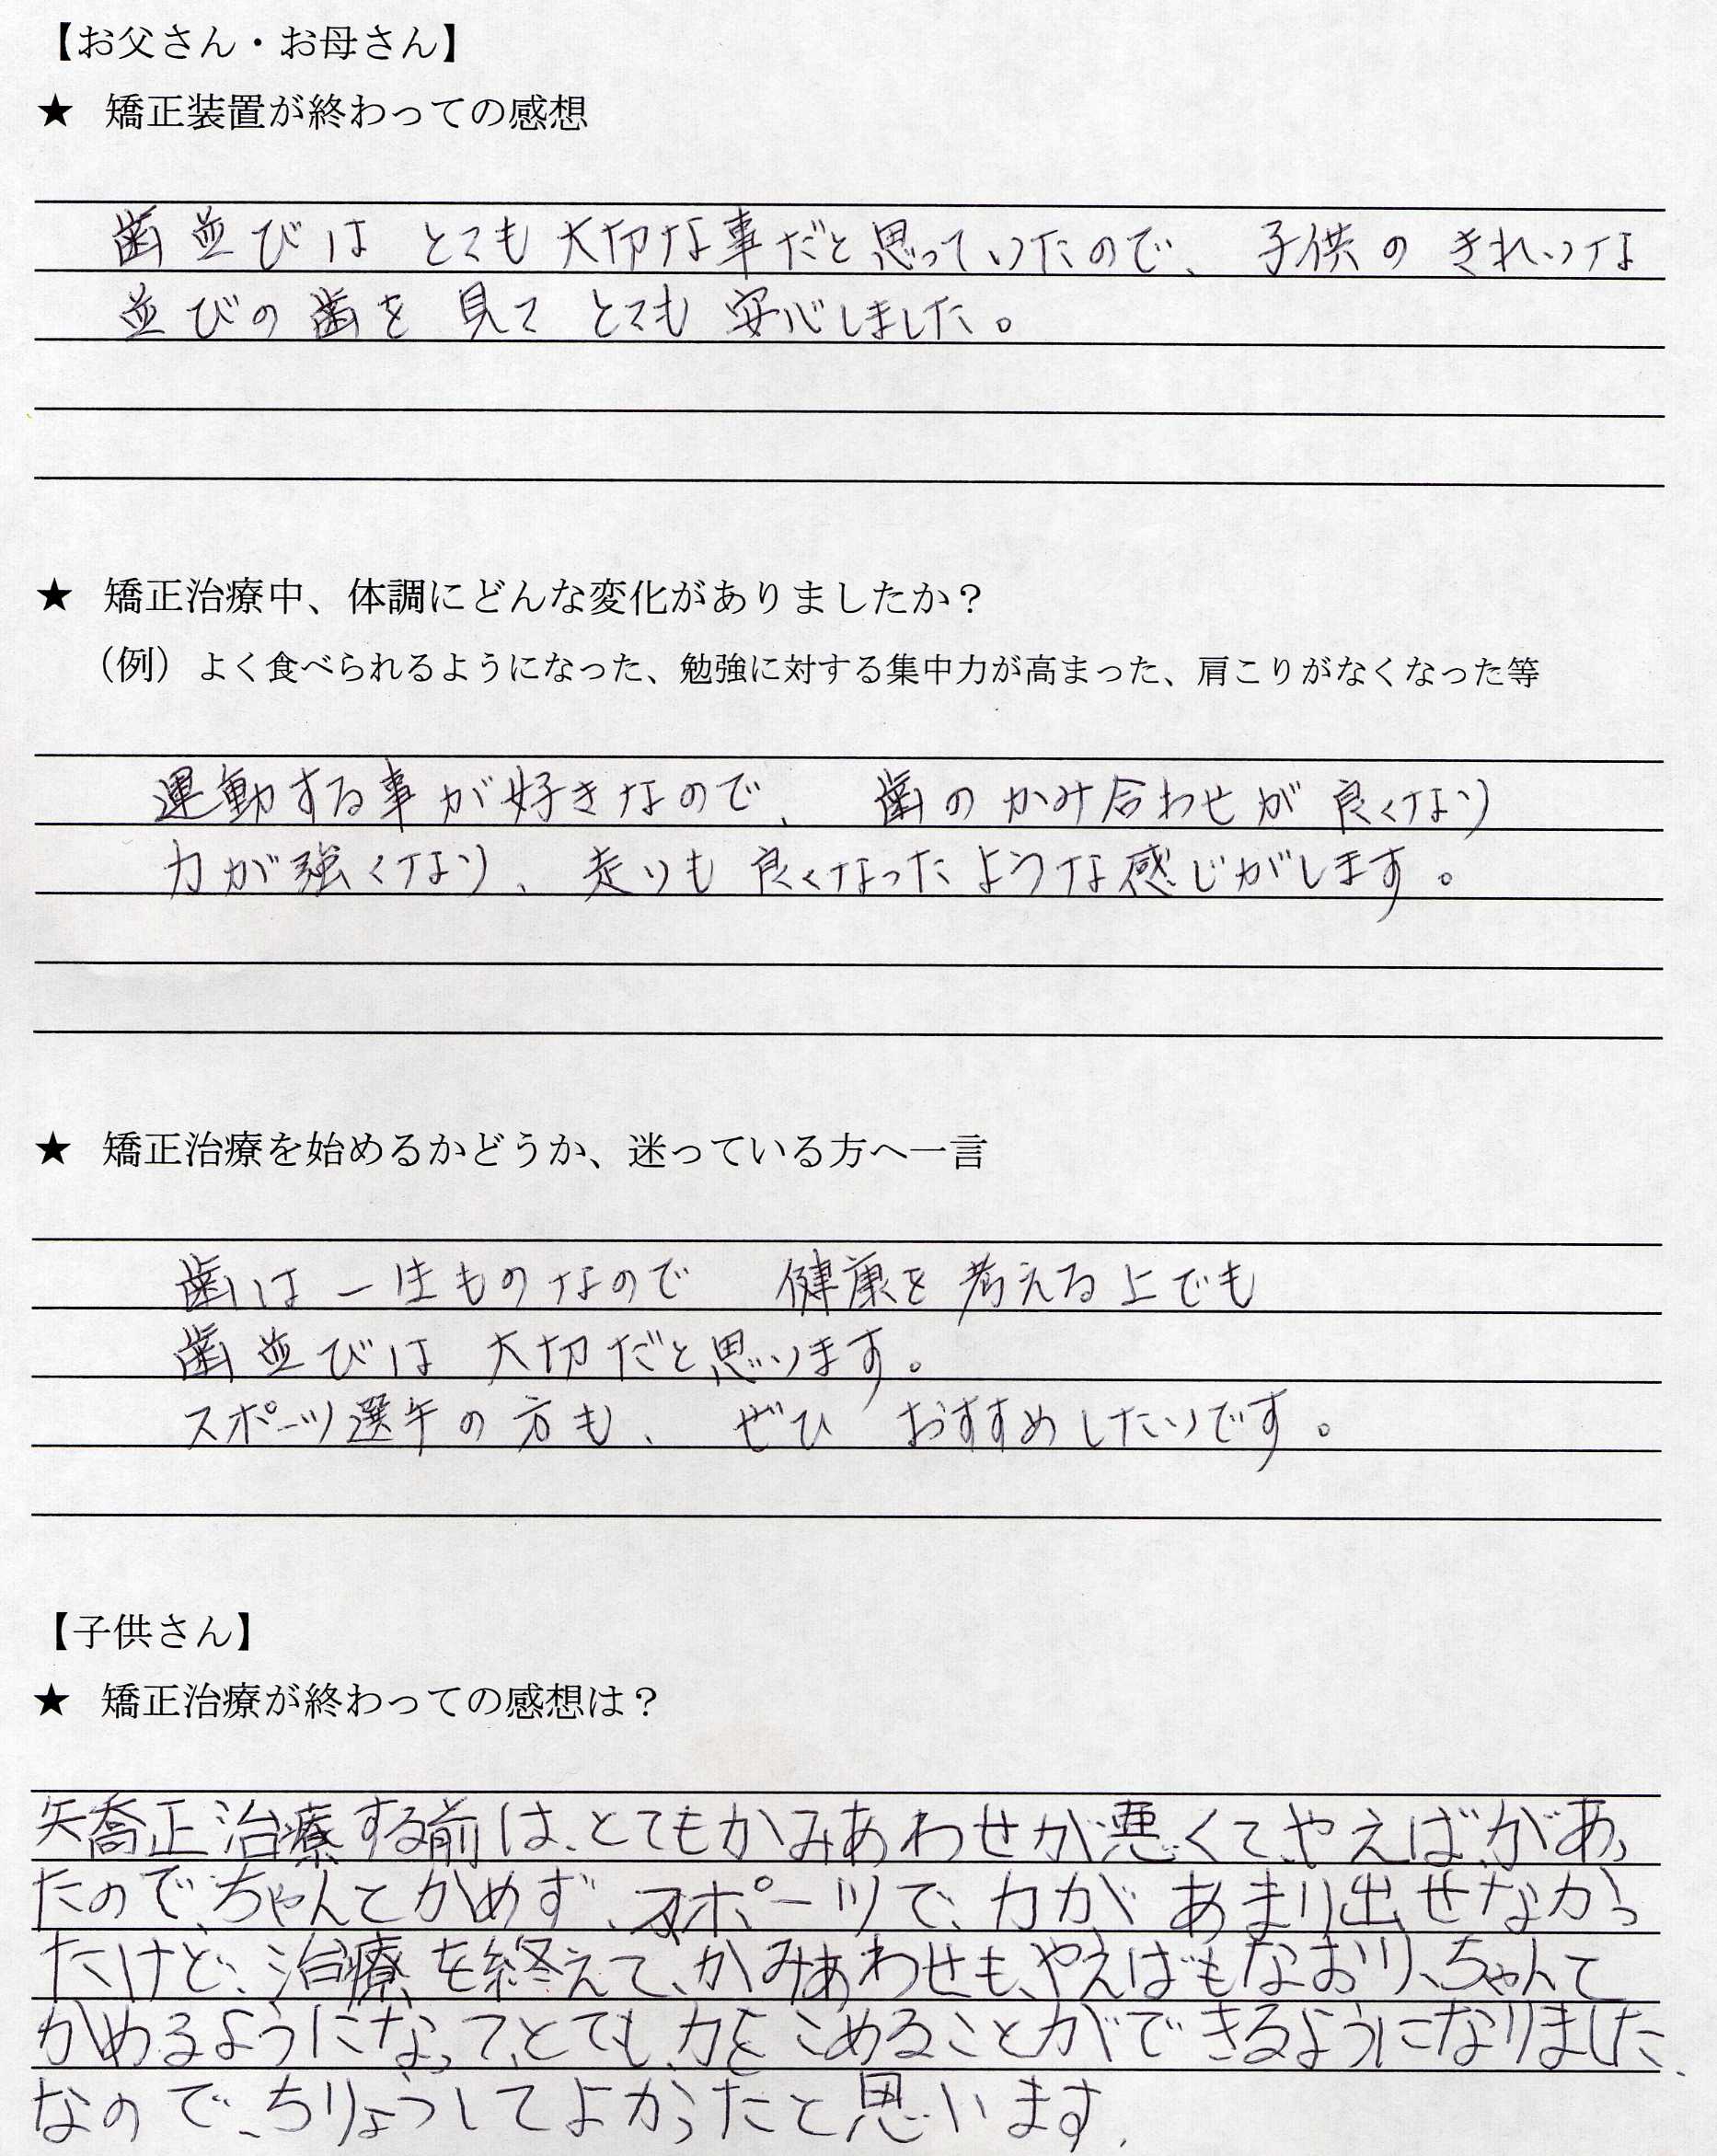 【お父さん・お母さん】
★ 矯正装置が終わっての感想
歯並びは とても大切な事だと思っていたので、子供の きれいな
並びの歯を 見て とても 安心しました。
★ 矯正治療中、体調にどんな変化がありましたか？
（例）よく食べられるようになった、勉強に対する集中力が高まった、肩こりがなくなった等
運動する事が好きなので、 歯のかみ合わせが 良くなり
力が強くなり、走りも 良くなったような感じがします。
★ 矯正治療を始めるかどうか、迷っている方へ一言
歯は一生ものなので 健康を考える上でも
歯並びは 大切だと思います。
スポーツ選手の方も、 ぜひ おすすめしたいです。
【子供さん】
★ 矯正治療が終わっての感想は？
矯正治療する前は、とてもかみあわせが悪くて、やえばがあっ
たので、ちゃんとかめず、スポーツで、力が あまり出せなかっ
たけど、治療を終えて、かみあわせも、やえばもなおり、ちゃんと
かめるようになって、とても、力をこめることができるようになりました、
なので、ちりょうしてよかったと思います、